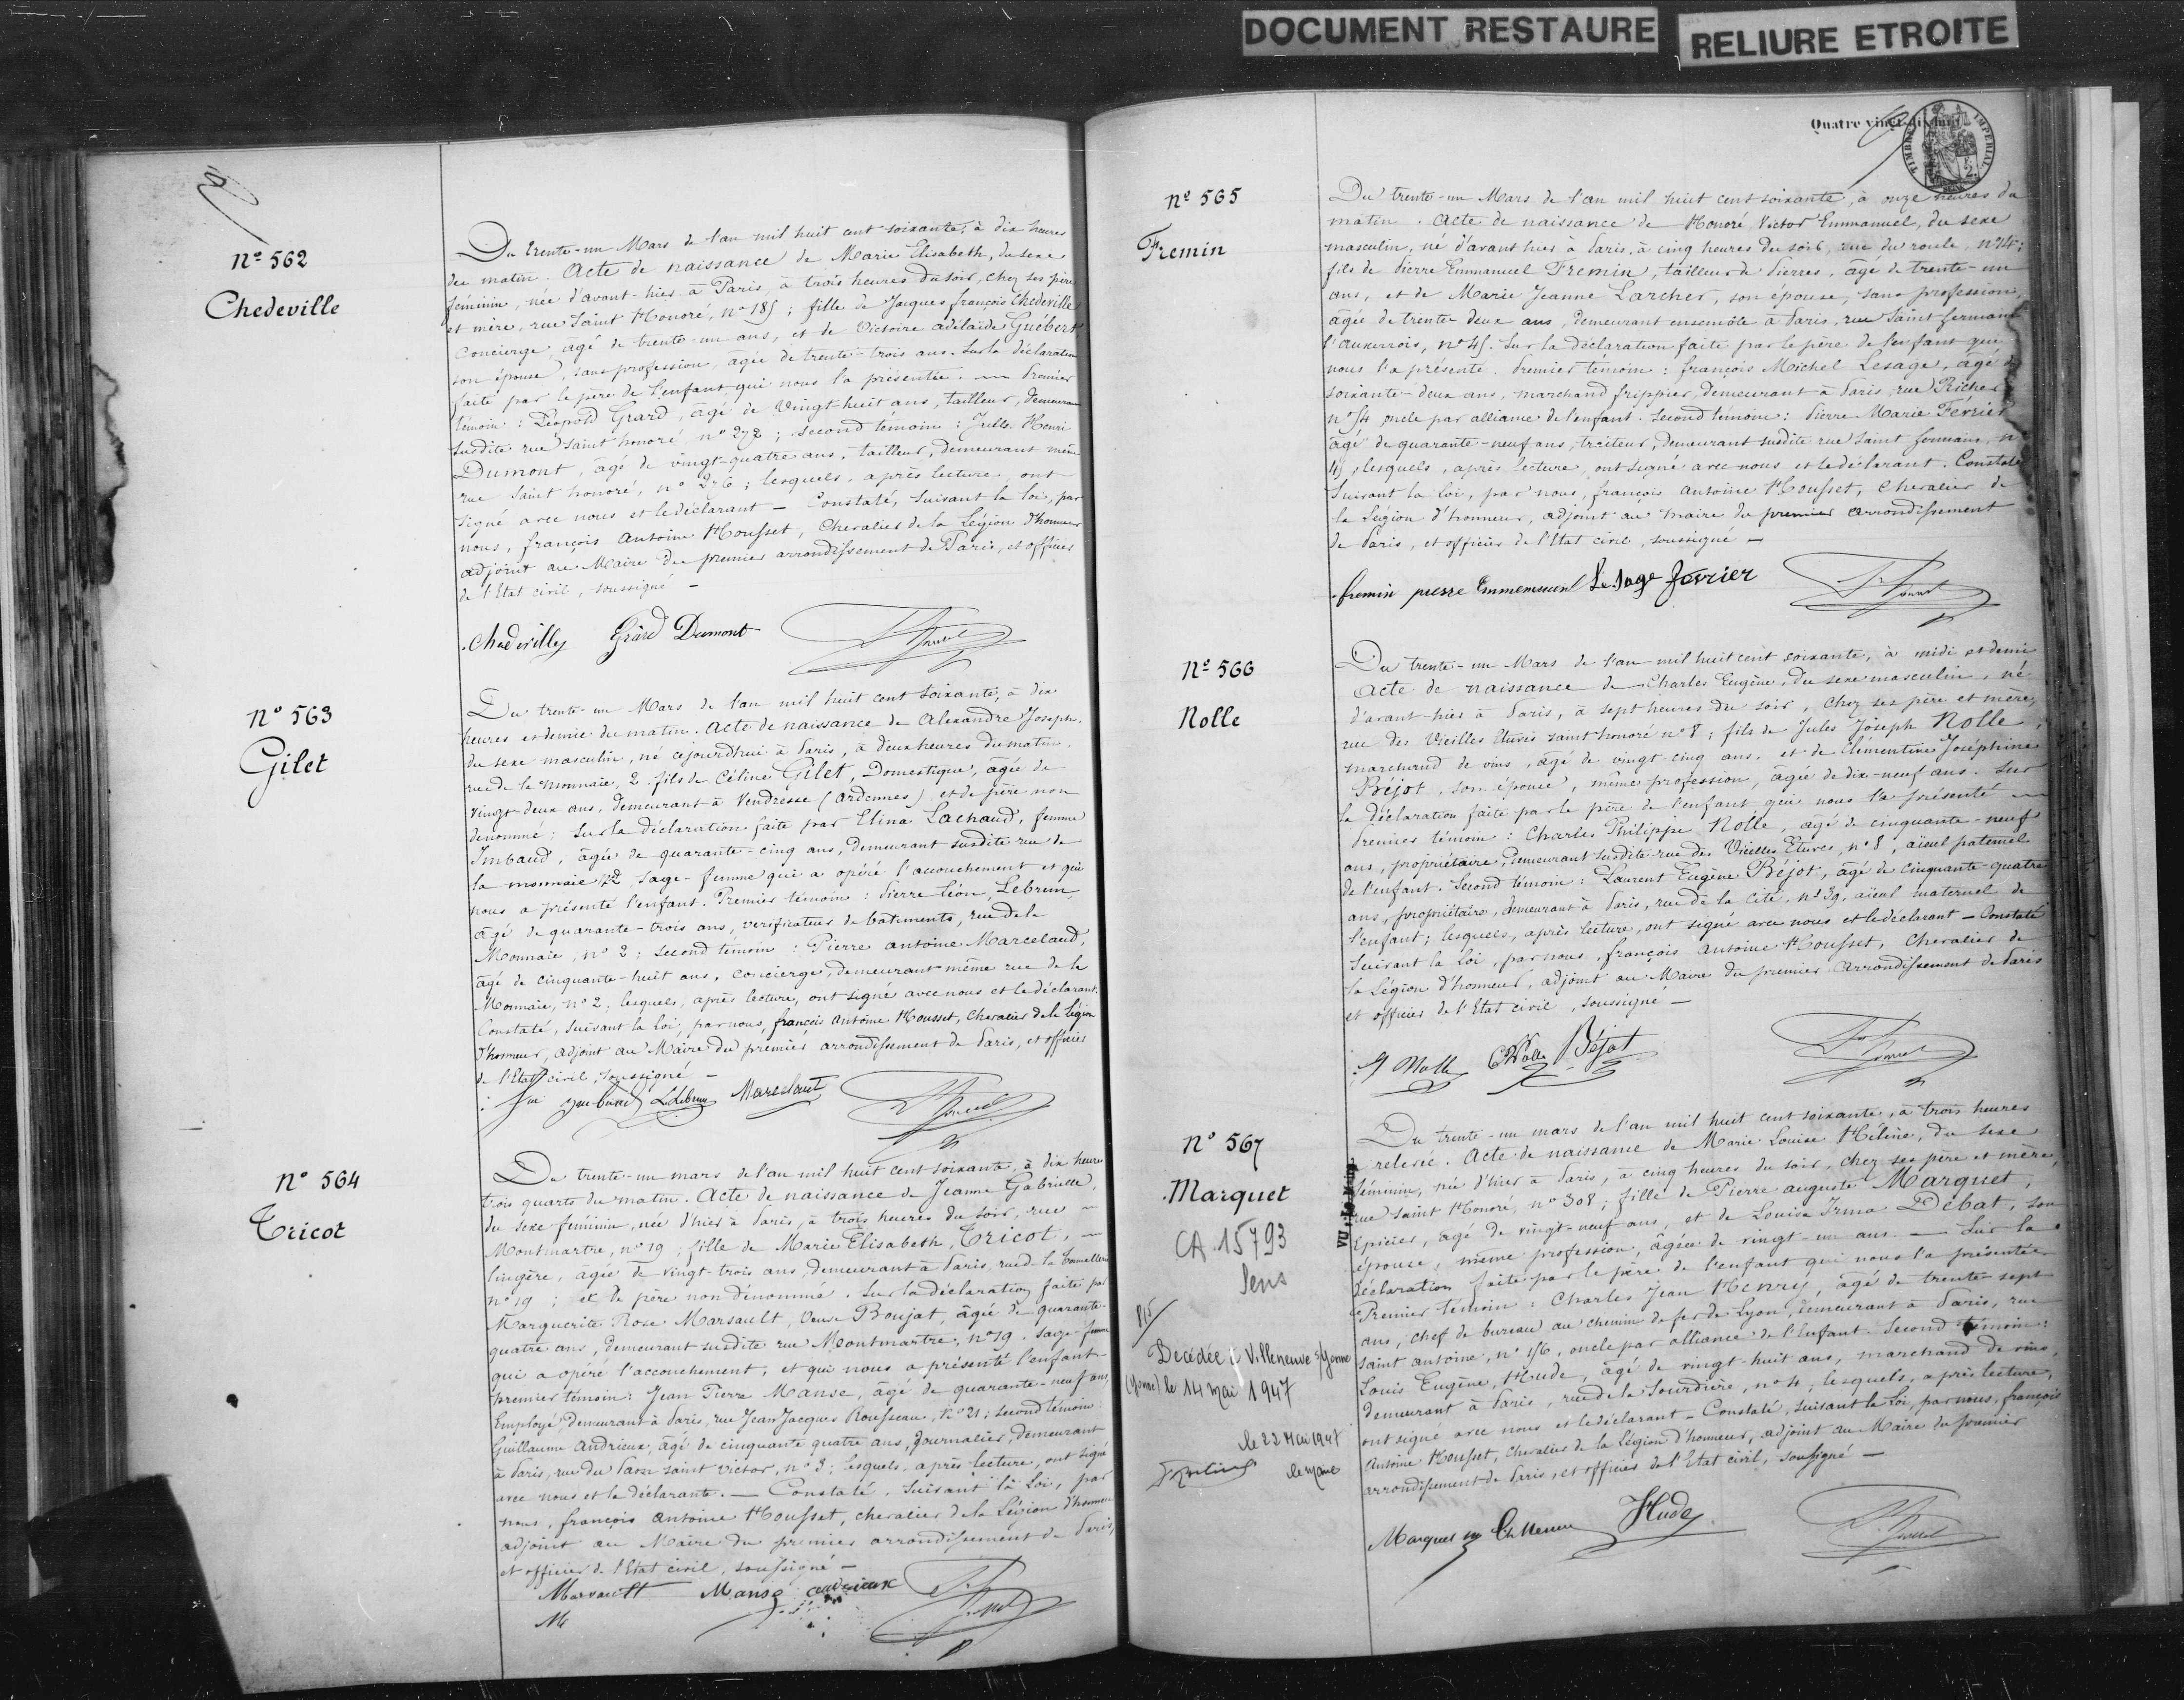 DOCUMENT RESTAURE
RELIURE ETROITE
Nº 562
Chedeville
Du trente-un Mars de l'an mil huit cent soixante, à dix heures
du matin. Acte de naissance de Marie Elisabeth, du sexe
féminin, née d'avant-hier à Paris, à trois heures du soir, chez ses père
et mère, rue Saint Honoré, nº 185; fille de Jacques françois Chedeville
Concierge, âgé de trente-un ans, et de Victoire adélaïde Guébert
son épouse, sans profession, âgée de trente-trois ans. Sur la déclaration
faite par le père de l'enfant qui nous l'a présentée. Premier
témoin: Léopold Grard, âgé de vingt-huit ans, tailleur, demeurant
susdite rue Saint honoré, nº 272; second témoin: Jules Henri
Dumont, âgé de vingt-quatre ans, tailleur, demeurant même
rue Saint honoré, nº 276; lesquels, après lecture, ont
signé avec nous et le déclarant - Constaté, suivant la loi, par
nous, françois Antoine Housset, Chevalier de la Légion d'honneur
adjoint au Maire du premier arrondissement de Paris, et officier
de l'Etat civil, soussigné -
Chedevilly Grard Dumont
Nº 563
Gilet
Du trente-un Mars de l'an mil huit cent soixante, à dix
heures et demie du matin. Acte de naissance de Alexandre Joseph,
du sexe masculin, né cejourd'hui à Paris, à deux heures du matin,
rue de la monnaie, 2, fils de Céline Gilet, Domestique, âgée de
vingt-deux ans, demeurant à Vendresse (ardennes), et de père non
dénommé; Sur la déclaration faite par Elina Lachaud, femme
Imbaud, âgée de quarante-cinq ans, demeurant susdite rue de
la monnaie 22, sage-femme qui a opéré l'accouchement et qui
nous a présenté l'enfant. Premier témoin: Pierre Léon Lebrun,
âgé de quarante-trois ans, vérificateur de batiments, rue de la
Monnaie, nº 2; second témoin: Pierre antoine Marcelaud,
âgé de cinquante-huit ans, concierge, demeurant même rue de la
Monnaie, nº 2; lesquels, après lecture, ont signé avec nous et le déclarant.
Constaté, suivant la loi, par nous, françois Antoine Housset, Chevalier de la Légion
d'honneur, adjoint au Maire du premier arrondissement de Paris, et officier
de l'Etat civil, soussigné -
Lebrun Marcelaud
Nº 564
Tricot
Du trente-un mars de l'an mil huit cent soixante, à dix heures
trois quarts du matin. Acte de naissance de Jeanne Gabrielle,
du sexe féminin, née d'hier à Paris, à trois heures du soir, rue
Montmartre, nº 19; fille de Marie Elisabeth Tricot,
lingère, âgée de vingt-trois ans, demeurant à Paris, rue de la
nº 19; et de père non dénommé. Sur la déclaration faite par
Marguerite Rose Marsault, Veuve Boujat, âgée de quarante-
quatre ans, demeurant susdite rue Montmartre, nº 19. sage-femme
qui a opéré l'accouchement, et qui nous a présenté l'enfant -
premier témoin: Jean Pierre Manse, âgé de quarante-neuf ans,
Employé, demeurant à Paris, rue Jean Jacques Rousseau, nº 21; second témoin:
Guillaume Andrieux, âgé de cinquante quatre ans, Journalier, demeurant
à Paris, rue du Paon saint victor, nº 3; lesquels, après lecture, ont signé
avec nous et la déclarante. - Constaté, suivant la Loi, par
nous, françois Antoine Housset, chevalier de la Légion d'honneur
adjoint au Maire du premier arrondissement de Paris,
et officier de l'Etat civil, soussigné -
Marsault Manse andrieux
Quatre vingt-dix-huit
TIMBRE IMPERIAL
Nº 565
Fremin
Du trente-un Mars de l'an mil huit cent soixante, à onze heures du
matin. Acte de naissance de Honoré Victor Emmanuel, du sexe
masculin, né d'avant hier à Paris, à cinq heures du soir, rue du roule, nº 14;
fils de Pierre Emmanuel Fremin, tailleur de Pierres, âgé de trente-un
ans, et de Marie Jeanne Larcher, son épouse, sans profession,
âgée de trente deux ans, demeurant ensemble à Paris, rue Saint Germain
l'auxerrois, nº 45. Sur la déclaration faite par le père de l'enfant qui
nous l'a présenté. Premier témoin: françois Michel Lesage, âgé de
soixante-deux ans, marchand frippier, demeurant à Paris, rue Richer
nº 54 oncle par alliance de l'enfant. Second témoin: Pierre Marie Février
âgé de quarante-neuf ans, traiteur, demeurant susdite rue Saint Germain, nº
45, lesquels, après lecture, ont signé avec nous et le déclarant. Constaté
Suivant la loi, par nous, françois Antoine Housset, Chevalier de
la Légion d'honneur, adjoint au maire du premier arrondissement
de Paris, et officier de l'Etat civil, soussigné -
fremin pierre Emmemanuel Lesage fevrier
Nº 566
Nolle
Du trente-un Mars de l'an mil huit cent soixante, à midi et demi
Acte de naissance de Charles Eugène, du sexe masculin, né
d'avant-hier à Paris, à sept heures du soir, Chez ses père et mère,
rue des Vieilles Etuves saint honoré nº 8; fils de Jules Joseph Nolle,
marchand de vins, âgé de vingt-cinq ans, et de Clémentine Joséphine
Béjot, son épouse, même profession, âgée de dix-neuf ans. Sur
la déclaration faite par le père de l'enfant qui nous l'a présenté
Premier témoin: Charles Philippe Nolle, âgé de cinquante-neuf
ans, propriétaire, demeurant susdite rue des Vieilles Etuves, nº 8, aïeul paternel
de l'enfant. Second témoin: Laurent Eugène Béjot, âgé de cinquante-quatre
ans, propriétaire, demeurant à Paris, rue de la Cité, nº 39, aïeul maternel de
l'enfant; lesquels, après lecture, ont signé avec nous et le déclarant - Constaté
Suivant la Loi, par nous, françois Antoine Housset, Chevalier de
la Légion d'honneur, adjoint au Maire du premier Arrondissement de Paris
et officier de l'Etat civil, soussigné -
J Nolle CNolle Béjot
Nº 567
Marquet
CA. 15793
Sens
Décédée à Villeneuve s/Yonne
(Yonne) le 14 Mai 1947
le 22 Mai 1947
le maire
Du trente-un mars de l'an mil huit cent soixante, à trois heures
relevée. Acte de naissance de Marie Louise Hélène, du sexe
féminin, née d'hier à Paris, à cinq heures du soir, chez ses père et mère,
rue Saint Honoré, nº 308; fille de Pierre auguste Marquet,
Epicier, âgé de vingt-neuf ans, et de Louise Irma Débat, son
épouse, même profession, âgée de vingt-un ans - Sur la
déclaration faite par le père de l'enfant qui nous l'a présentée
Premier témoin: Charles Jean Henry, âgé de trente-sept
ans, chef de bureau au chemin de fer de Lyon, demeurant à Paris, rue
Saint antoine, nº 156, oncle par alliance de l'Enfant. Second témoin:
Louis Eugène Hude, âgé de vingt-huit ans, marchand de vins,
demeurant à Paris, rue de la Sourdière, nº 4; lesquels, après lecture,
ont signé avec nous et le déclarant - Constaté, suivant la Loi, par nous, françois
Antoine Housset, chevalier de la Légion d'honneur, adjoint au Maire du premier
arrondissement de Paris, et officier de l'Etat civil, soussigné -
Marquet Hude